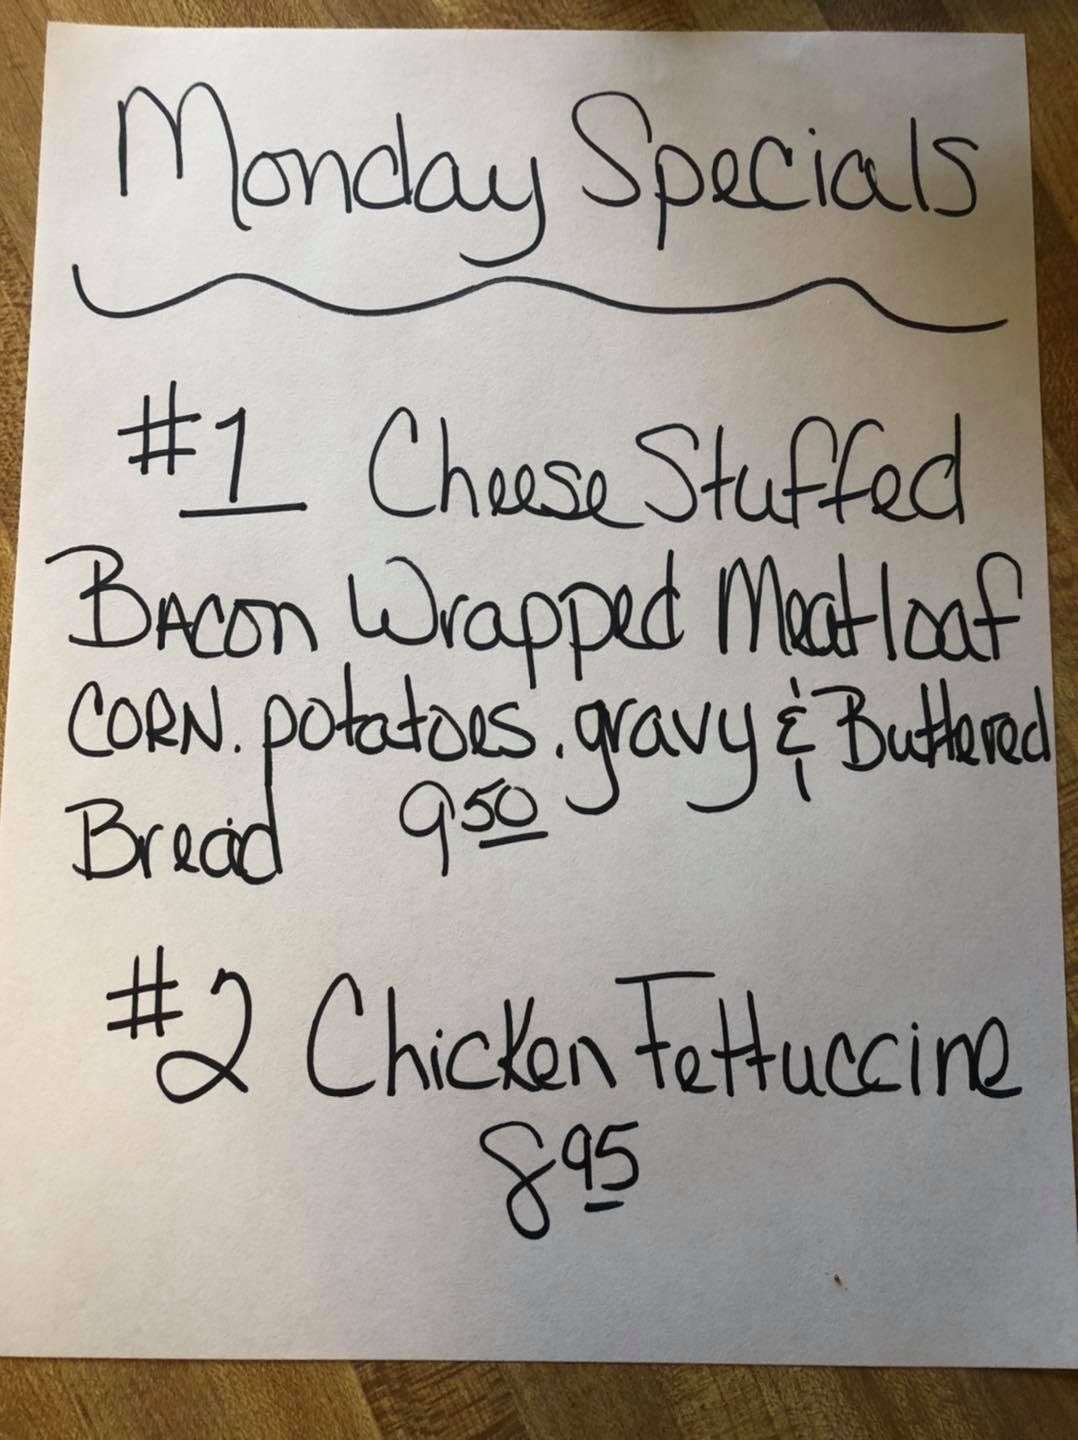 Monday Specials
#1 Cheese Stuffed
Bacon Wrapped Meatloaf
CORN. potatoes. gravy & Buttered
Bread 9 50
#2 Chicken Fettuccine
8 95